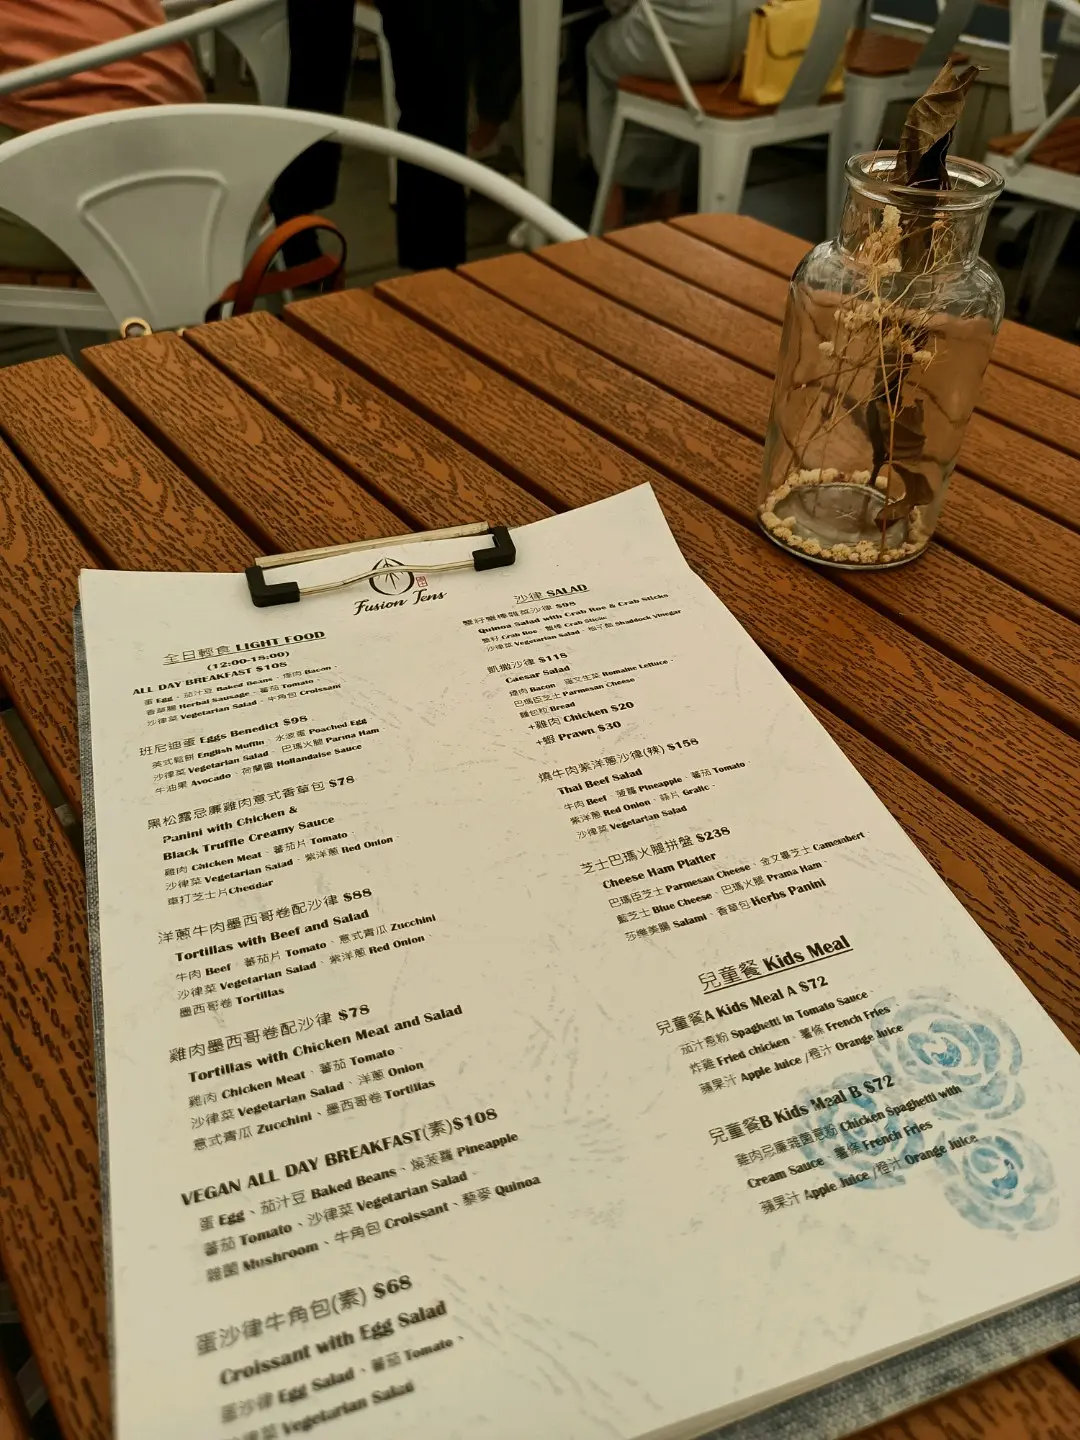 Fusion Tens
全日輕食 LIGHT FOOD
(12:00-18:00)
ALL DAY BREAKFAST $108
蛋 Egg、茄汁豆 Baked Beans、煙肉 Bacon、
香草腸 Herbal Sausage、蕃茄 Tomato、
沙律菜 Vegetarian Salad、牛角包 Croissant
班尼迪蛋 Eggs Benedict $98
英式鬆餅 English Muffin、水波蛋 Poached Egg
沙律菜 Vegetarian Salad、巴瑪火腿 Parma Ham
牛油果 Avocado、荷蘭醬 Hollandaise Sauce
黑松露忌廉雞肉意式香草包 $78
Panini with Chicken &
Black Truffle Creamy Sauce
雞肉 Chicken Meat、蕃茄片 Tomato、
沙律菜 Vegetarian Salad、紫洋蔥 Red Onion、
車打芝士片Cheddar
洋蔥牛肉墨西哥卷配沙律 $88
Tortillas with Beef and Salad
牛肉 Beef、蕃茄片 Tomato、意式青瓜 Zucchini
沙律菜 Vegetarian Salad、紫洋蔥 Red Onion、
墨西哥卷 Tortillas
雞肉墨西哥卷配沙律 $78
Tortillas with Chicken Meat and Salad
雞肉 Chicken Meat、蕃茄 Tomato、
沙律菜 Vegetarian Salad、洋蔥 Onion
意式青瓜 Zucchini、墨西哥卷 Tortillas
VEGAN ALL DAY BREAKFAST(素)$108
蛋 Egg、茄汁豆 Baked Beans、燒菠蘿 Pineapple
蕃茄 Tomato、沙律菜 Vegetarian Salad、
雜菌 Mushroom、牛角包 Croissant、藜麥 Quinoa
蛋沙律牛角包(素) $68
Croissant with Egg Salad
蛋沙律 Egg Salad、蕃茄 Tomato、
沙律菜 Vegetarian Salad
沙律 SALAD
蟹籽蟹棒藜麥沙律 $98
Quinoa Salad with Crab Roe & Crab Sticks
蟹籽 Crab Roe、蟹棒 Crab Sticks
沙律菜 Vegetarian Salad、柚子醋 Shaddock Vinegar
凱撒沙律 $118
Caesar Salad
煙肉 Bacon、羅文生菜 Romaine Lettuce、
巴瑪臣芝士 Parmesan Cheese
麵包粒 Bread
+雞肉 Chicken $20
+蝦 Prawn $30
燒牛肉紫洋蔥沙律(辣) $158
Thai Beef Salad
牛肉 Beef、菠蘿 Pineapple、蕃茄 Tomato
紫洋蔥 Red Onion、蒜片 Gralic、
沙律菜 Vegetarian Salad
芝士巴瑪火腿拼盤 $238
Cheese Ham Platter
巴瑪臣芝士 Parmesan Cheese、金文畢芝士 Camembert、
藍芝士 Blue Cheese、巴瑪火腿 Prama Ham、
莎樂美腸 Salami、香草包 Herbs Panini
兒童餐 Kids Meal
兒童餐A Kids Meal A $72
茄汁意粉 Spaghetti in Tomato Sauce、
炸雞 Fried chicken、薯條 French Fries
蘋果汁 Apple Juice /橙汁 Orange Juice
兒童餐B Kids Meal B $72
雞肉忌廉雜菌意粉 Chicken Spaghetti with
Cream Sauce、薯條 French Fries
蘋果汁 Apple Juice /橙汁 Orange Juice